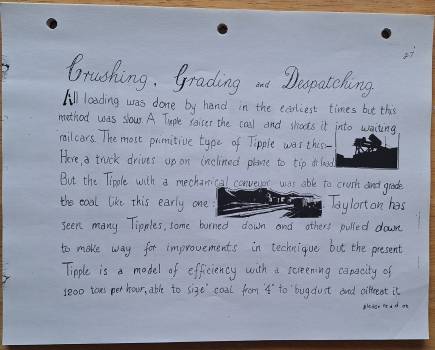 27
Crushing, Grading and Despatching
All loading was done by hand in the earliest times but this
method was slow. A Tipple raises the coal and shoots it into waiting
railcars. The most primitive type of Tipple was this:—
Here, a truck drives up on inclined plane to tip its load.
But the Tipple with a mechanical conveyor was able to crush and grade
the coal like this early one: Taylorton has
seen many Tipples, some burned down and others pulled down
to make way for improvements in technique but the present
Tipple is a model of efficiency with a screening capacity of
1200 tons per hour, able to 'size' coal from '4' to 'bugdust' and oiltreat it
please read on